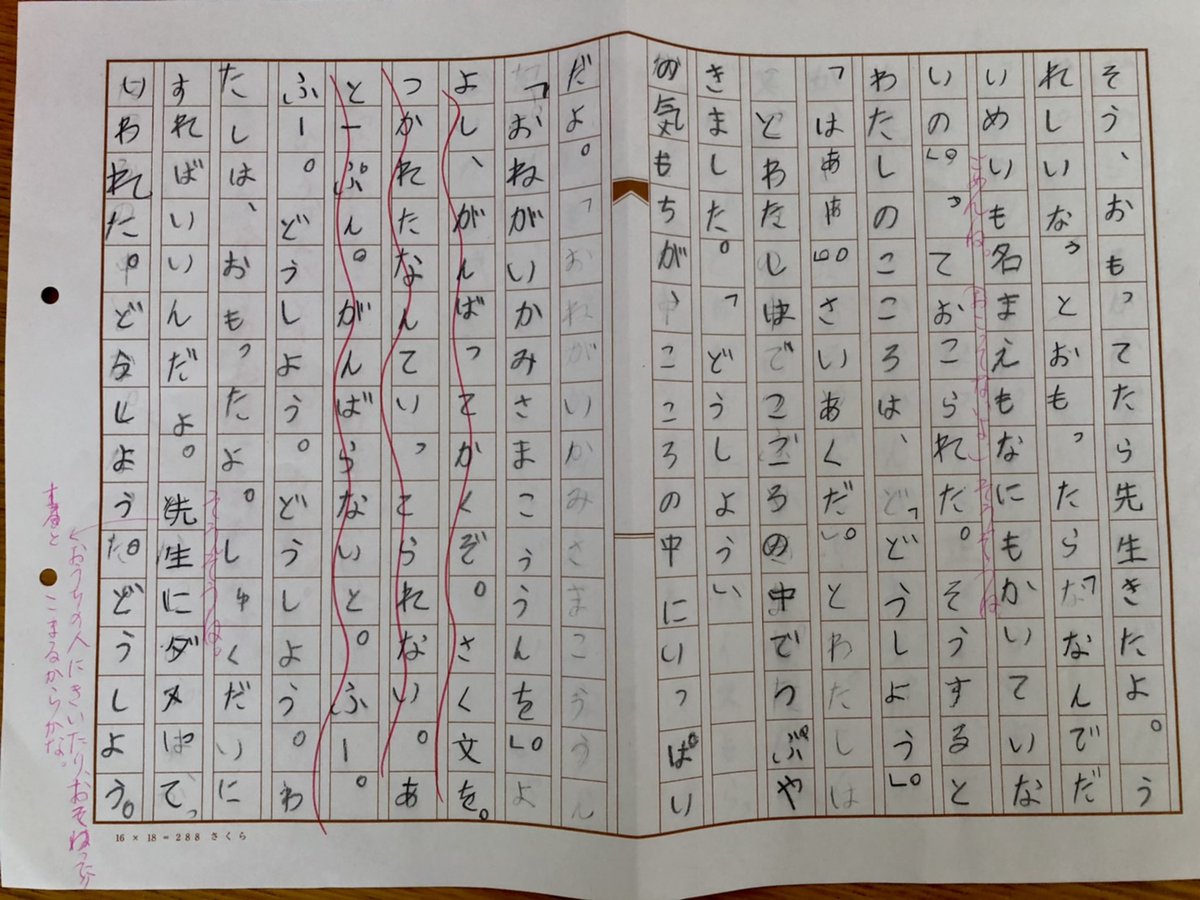 そう、おもってたら先生きたよ。う
れしいな。っとおもったら「なんでだ
いめいも名まえもなにもかいていな
いの」。っておこられた。そうすると
わたしのこころは、「どうしよう」。
「はぁぁぁ」。さいあくだ」。とわたしは
とわたしはでこころの中でつぶや
きました。「どうしようい
の気もちが、こころの中にいっぱい
だよ。「おねがいかみさまこううん
「おねがいかみさまこううんを」。よ
よし、がんばってかくぞ。さく文を。
つかれたなんていってられない。あ
と一ぷん。がんばらないと。ふー。
ふー。どうしよう。どうしよう。わ
たしは、おもったよ。しゅくだいに
すればいいんだよ。先生にダメぱてっ
いわれた。どうしようだどうしよう。
ごめんね。(おこってないよ) そうそうね
そうそうね。
おうちの人にきいたり、おそわったり
すると こまるからかな。
16 × 18 = 288 さくら